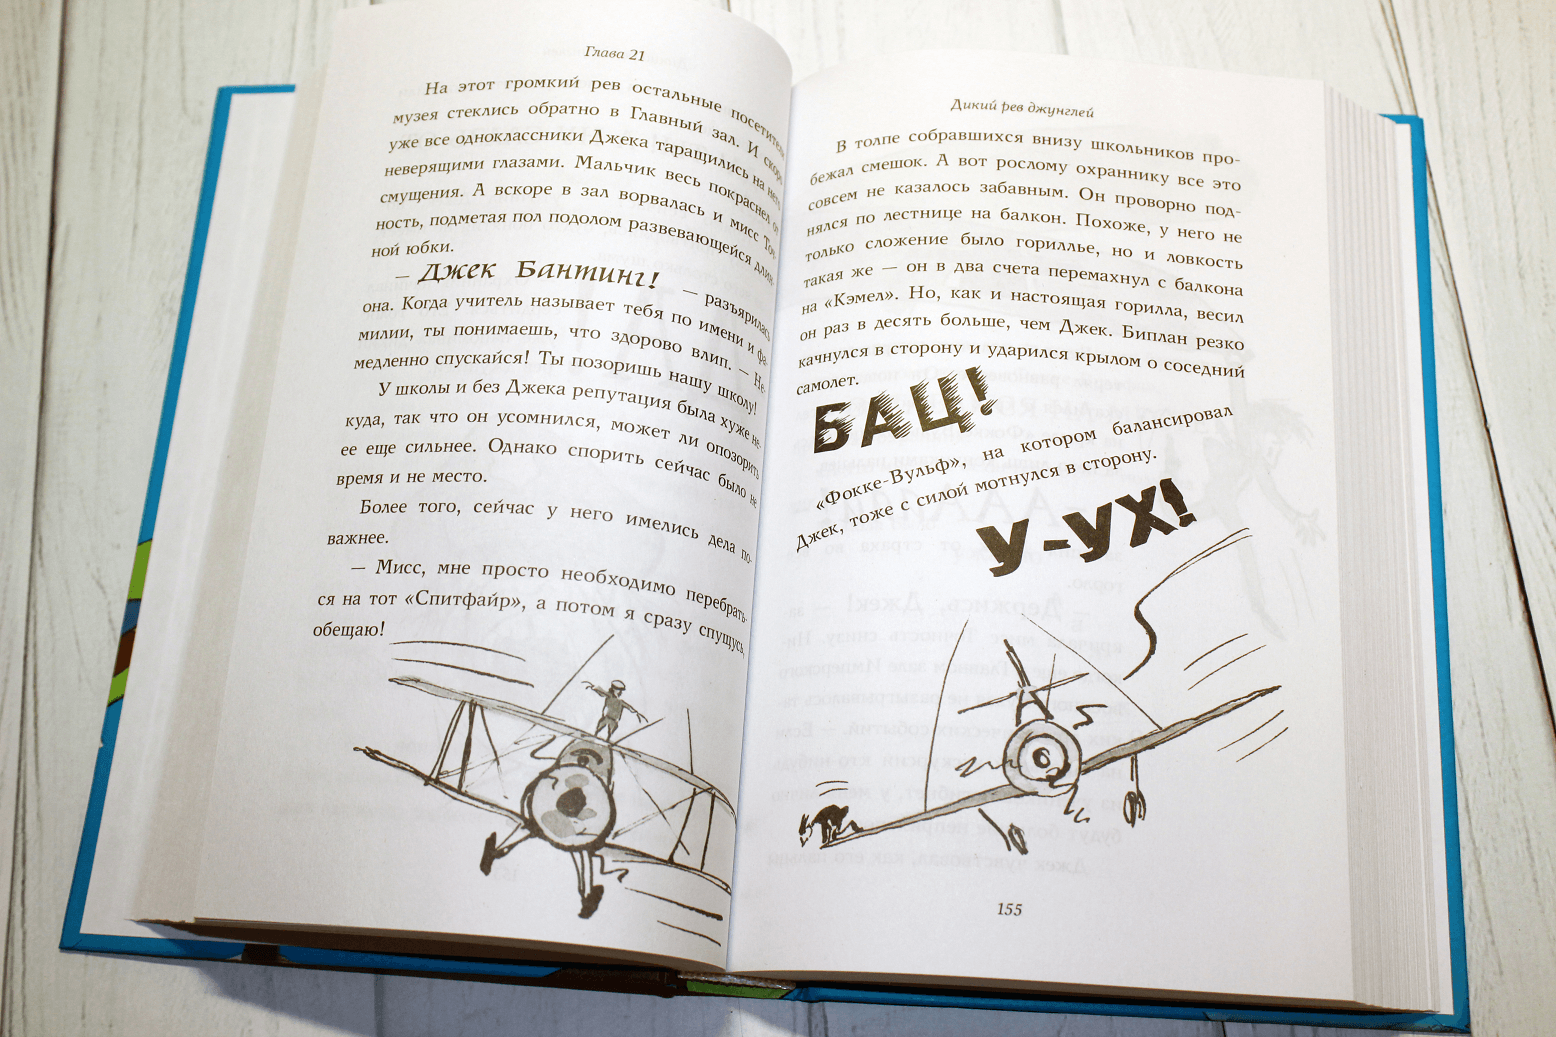 Глава 21
На этот громкий рев остальные посетители
музея стеклись обратно в Главный зал. И скоро
уже все одноклассники Джека таращились на него
неверящими глазами. Мальчик весь покраснел от
смущения. А вскоре в зал ворвалась и мисс Точ-
ность, подметая пол подолом развевающейся длин-
ной юбки.
— Джек Бантинг! — разъярилась
она. Когда учитель называет тебя по имени и фа-
милии, ты понимаешь, что здорово влип. — Не-
медленно спускайся! Ты позоришь нашу школу!
У школы и без Джека репутация была хуже не-
куда, так что он усомнился, может ли опозорить
ее еще сильнее. Однако спорить сейчас было не
время и не место.
Более того, сейчас у него имелись дела по-
важнее.
— Мисс, мне просто необходимо перебрать-
ся на тот «Спитфайр», а потом я сразу спущусь,
обещаю!
Дикий рев джунглей
В толпе собравшихся внизу школьников про-
бежал смешок. А вот рослому охраннику все это
совсем не казалось забавным. Он проворно под-
нялся по лестнице на балкон. Похоже, у него не
только сложение было гориллье, но и ловкость
такая же — он в два счета перемахнул с балкона
на «Кэмел». Но, как и настоящая горилла, весил
он раз в десять больше, чем Джек. Биплан резко
качнулся в сторону и ударился крылом о соседний
самолет.
БАЦ!
«Фокке-Вульф», на котором балансировал
Джек, тоже с силой мотнулся в сторону.
У-УХ!
155